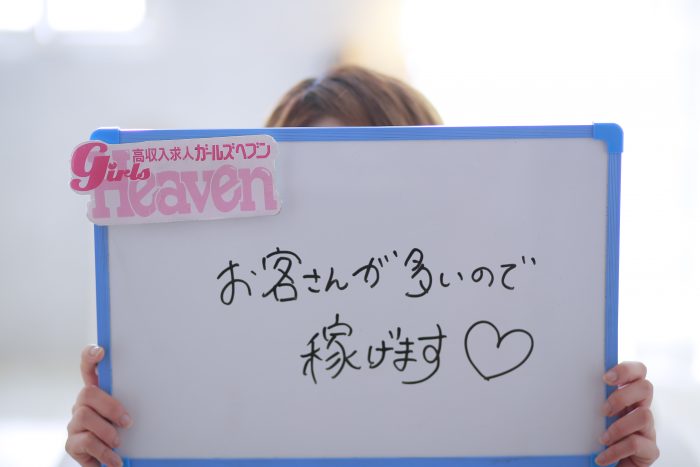 高収入求人ガールズヘブン
Girls
Heaven
お客さんが多いので
稼げます♡